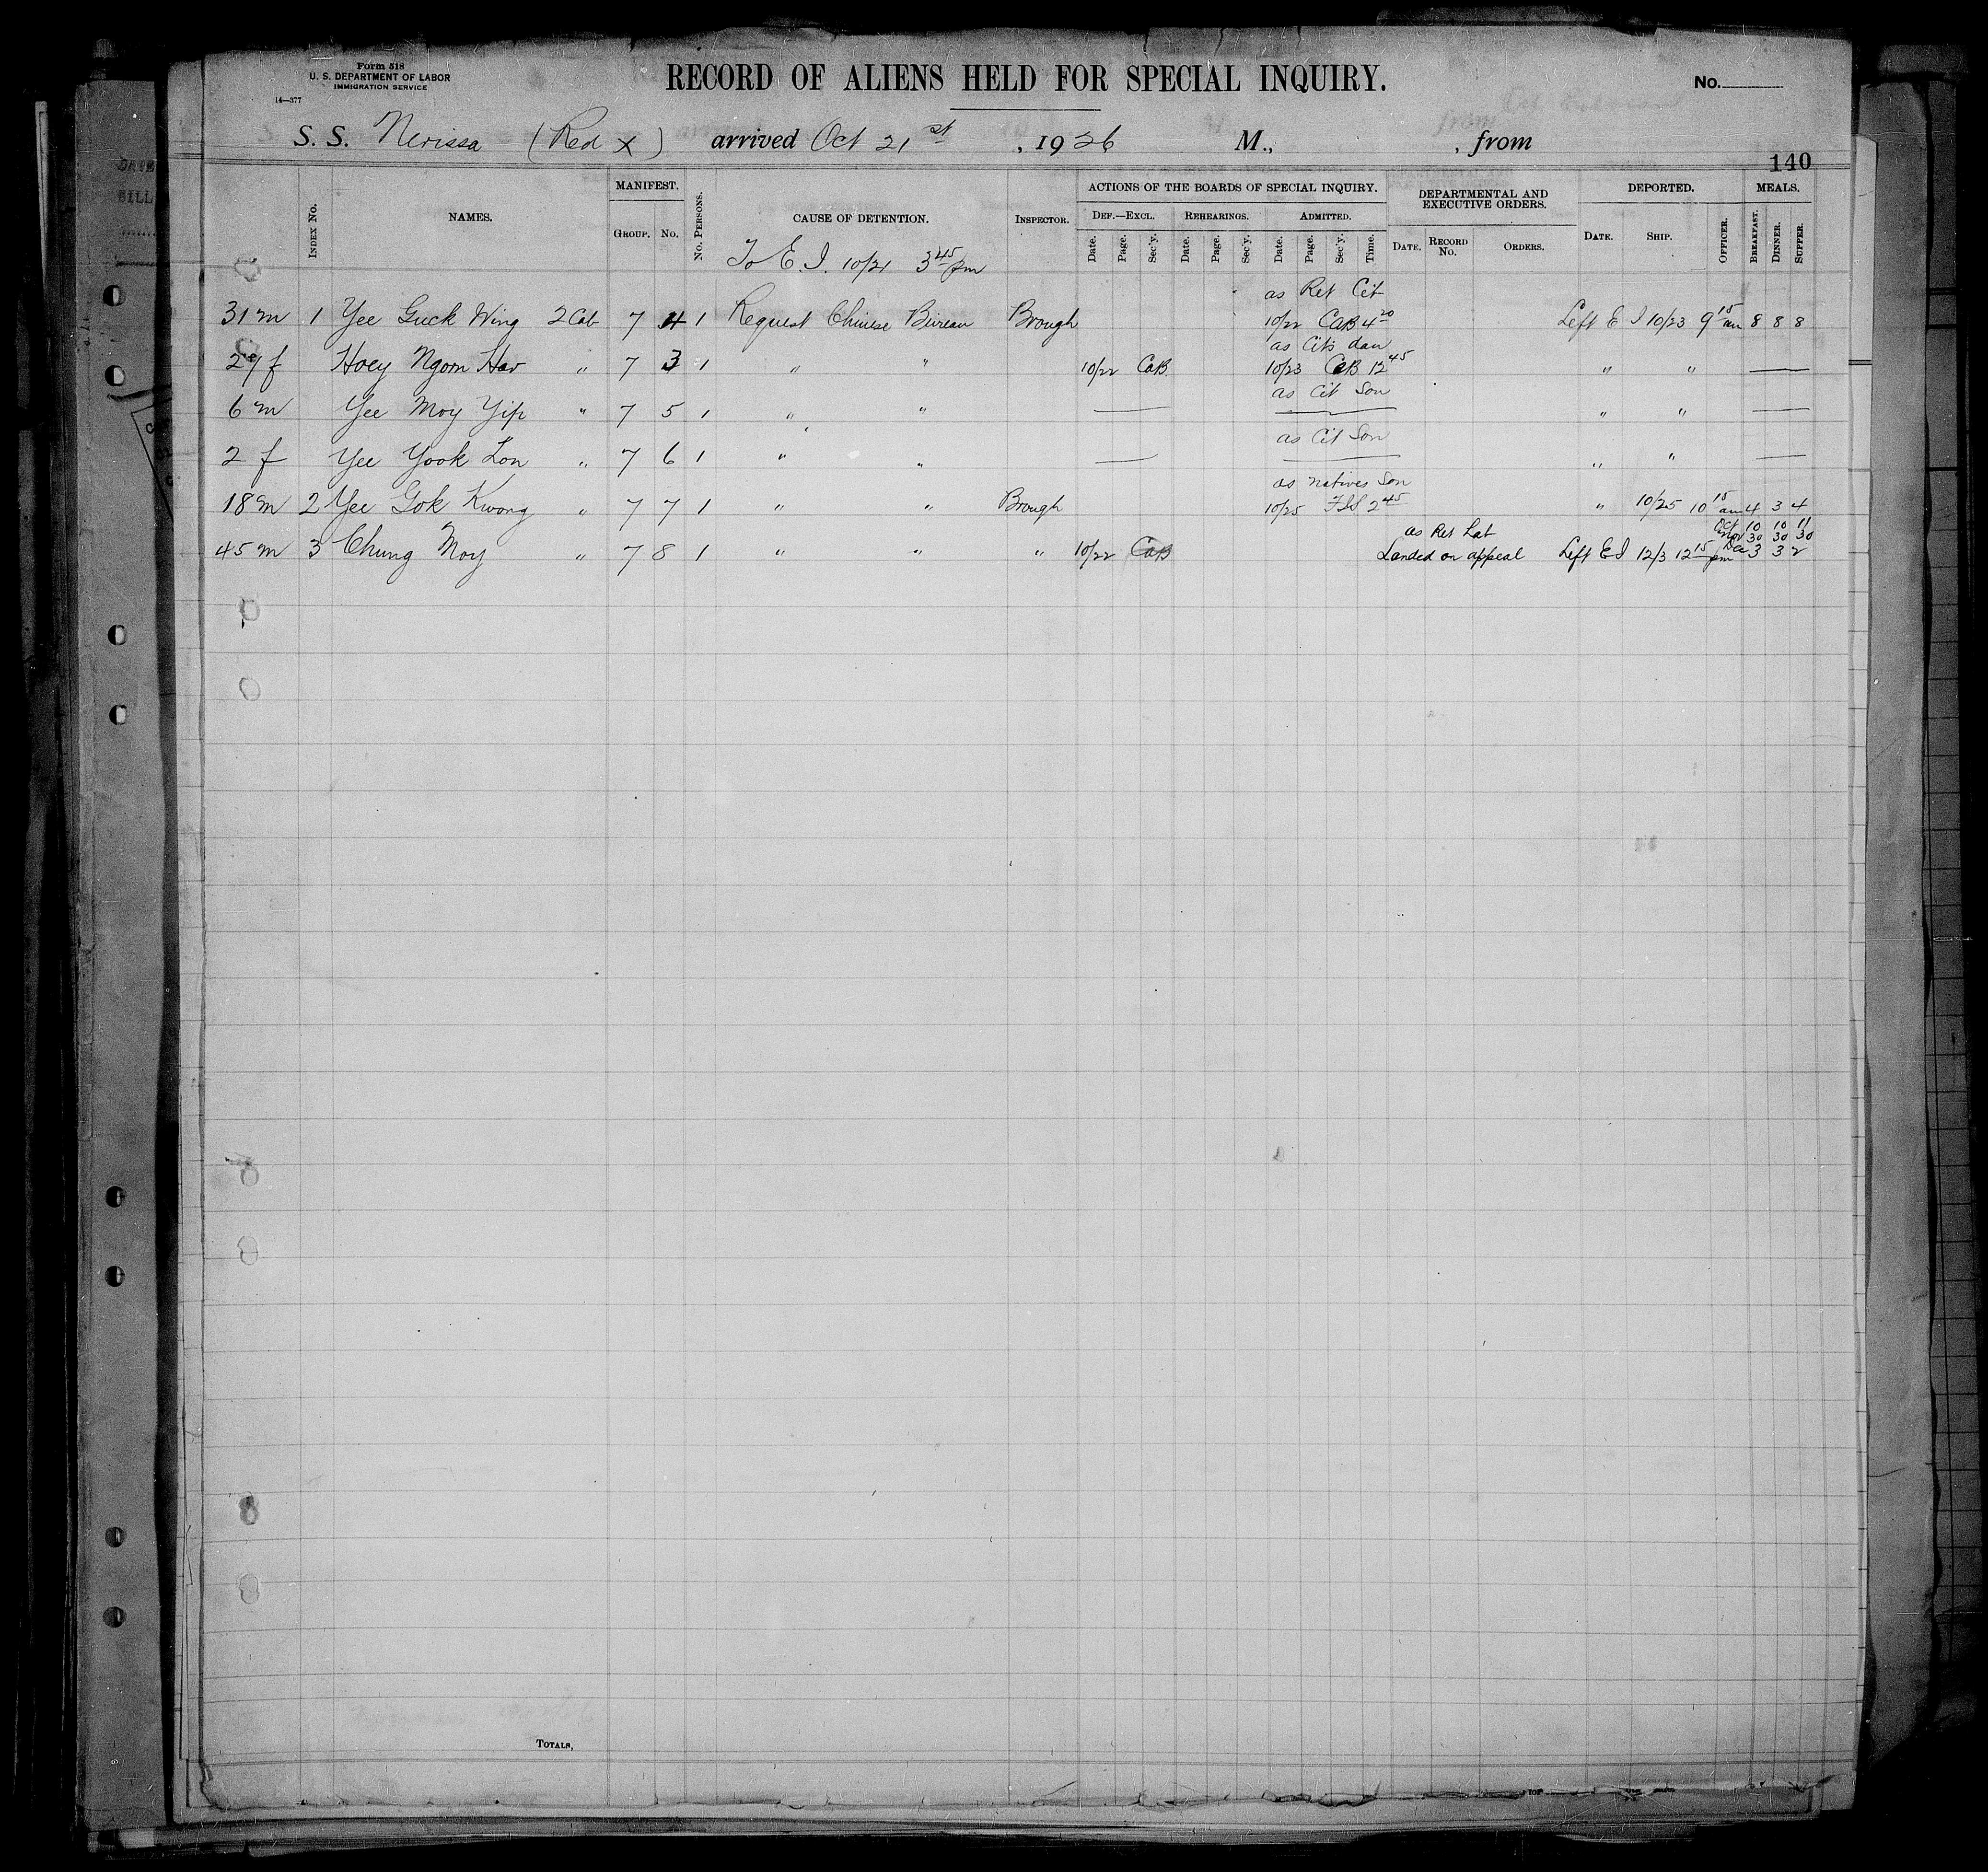 Form 518
U. S. DEPARTMENT OF LABOR
IMMIGRATION SERVICE
14—377
RECORD OF ALIENS HELD FOR SPECIAL INQUIRY.
No.
S. S. Nerissa (Red X) arrived Oct 21st, 1926 M., , from
140
INDEX No. NAMES. MANIFEST. GROUP. No. No. PERSONS. CAUSE OF DETENTION. INSPECTOR. ACTIONS OF THE BOARDS OF SPECIAL INQUIRY. DEF.—EXCL. Date. Page. Sec'y. REHEARINGS. Date. Page. Sec'y. ADMITTED. Date. Page. Sec'y. Time. DEPARTMENTAL AND EXECUTIVE ORDERS. DATE. RECORD No. ORDERS. DEPORTED. DATE. SHIP. OFFICER. MEALS. BREAKFAST. DINNER. SUPPER.
To E. I. 10/21 3 45 pm
as Ret Cit
31 m 1 Yee Guck Wing 2 Cab 7 4 1 Request Chinese Bureau Brough 10/22 CAB 4 20 Left E I 10/23 9 15 am 8 8 8
as Cits dau
29 f Hoey Ngom Hav " 7 3 1 " " 10/22 CAB 10/23 CAB 12 45 " " —
as Cit Son
6 m Yee Moy Yip " 7 5 1 " " — — " " —
as Cit Son
2 f Yee Yook Lon " 7 6 1 " " — — " " —
as natives Son
18 m 2 Yee Gok Kwong " 7 7 1 " " Brough 10/25 2 45 " 10/25 10 15 am 4 3 4
as Ret Lab Oct 10 10 11
Nov 30 30 30
45 m 3 Chung Moy " 7 8 1 " " " 10/22 CAB Landed on appeal Left E I 12/3 12 15 pm Dec 3 3 2
TOTALS,